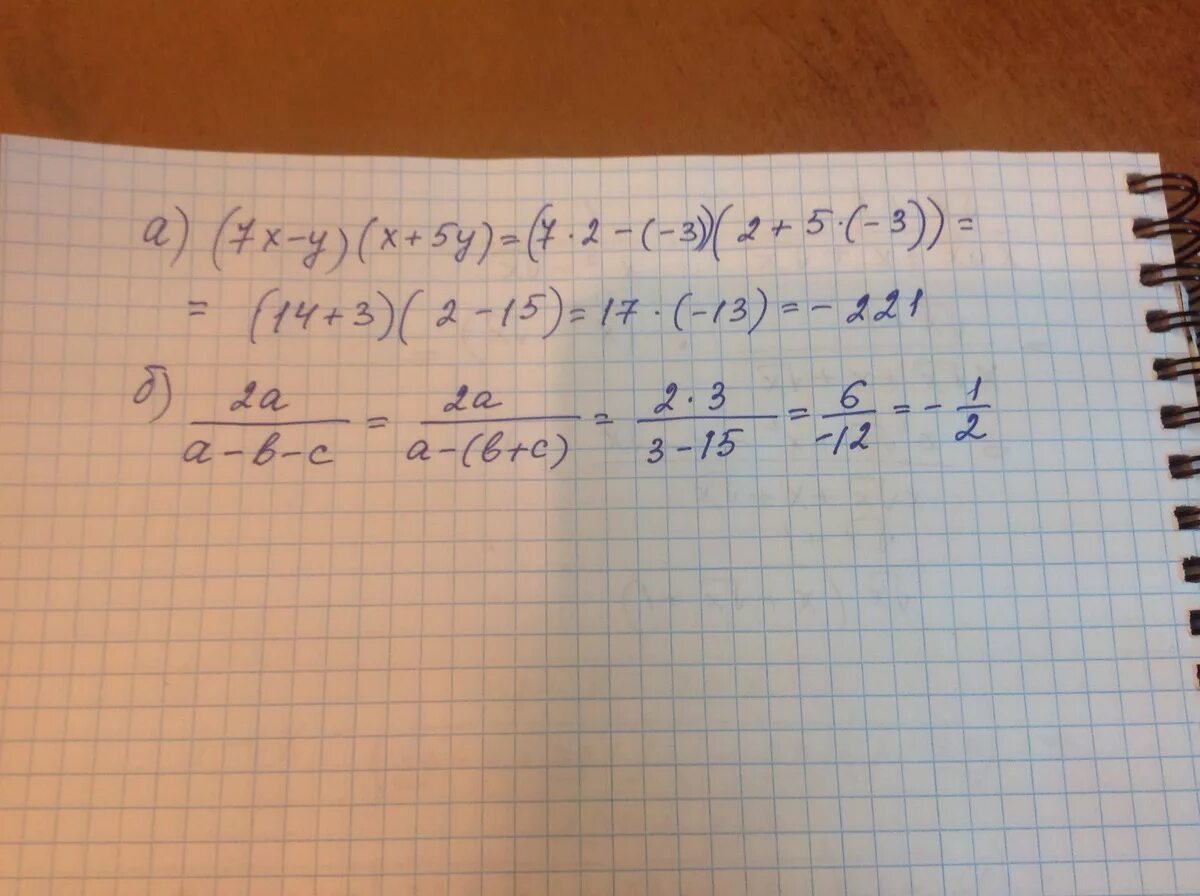 а) (7x-y)(x+5y)=(7·2-(-3))(2+5·(-3))=
= (14+3)(2-15)=17·(-13)=-221
б) 2a/(a-b-c) = 2a/(a-(b+c)) = 2·3/(3-15) = 6/-12 = -1/2